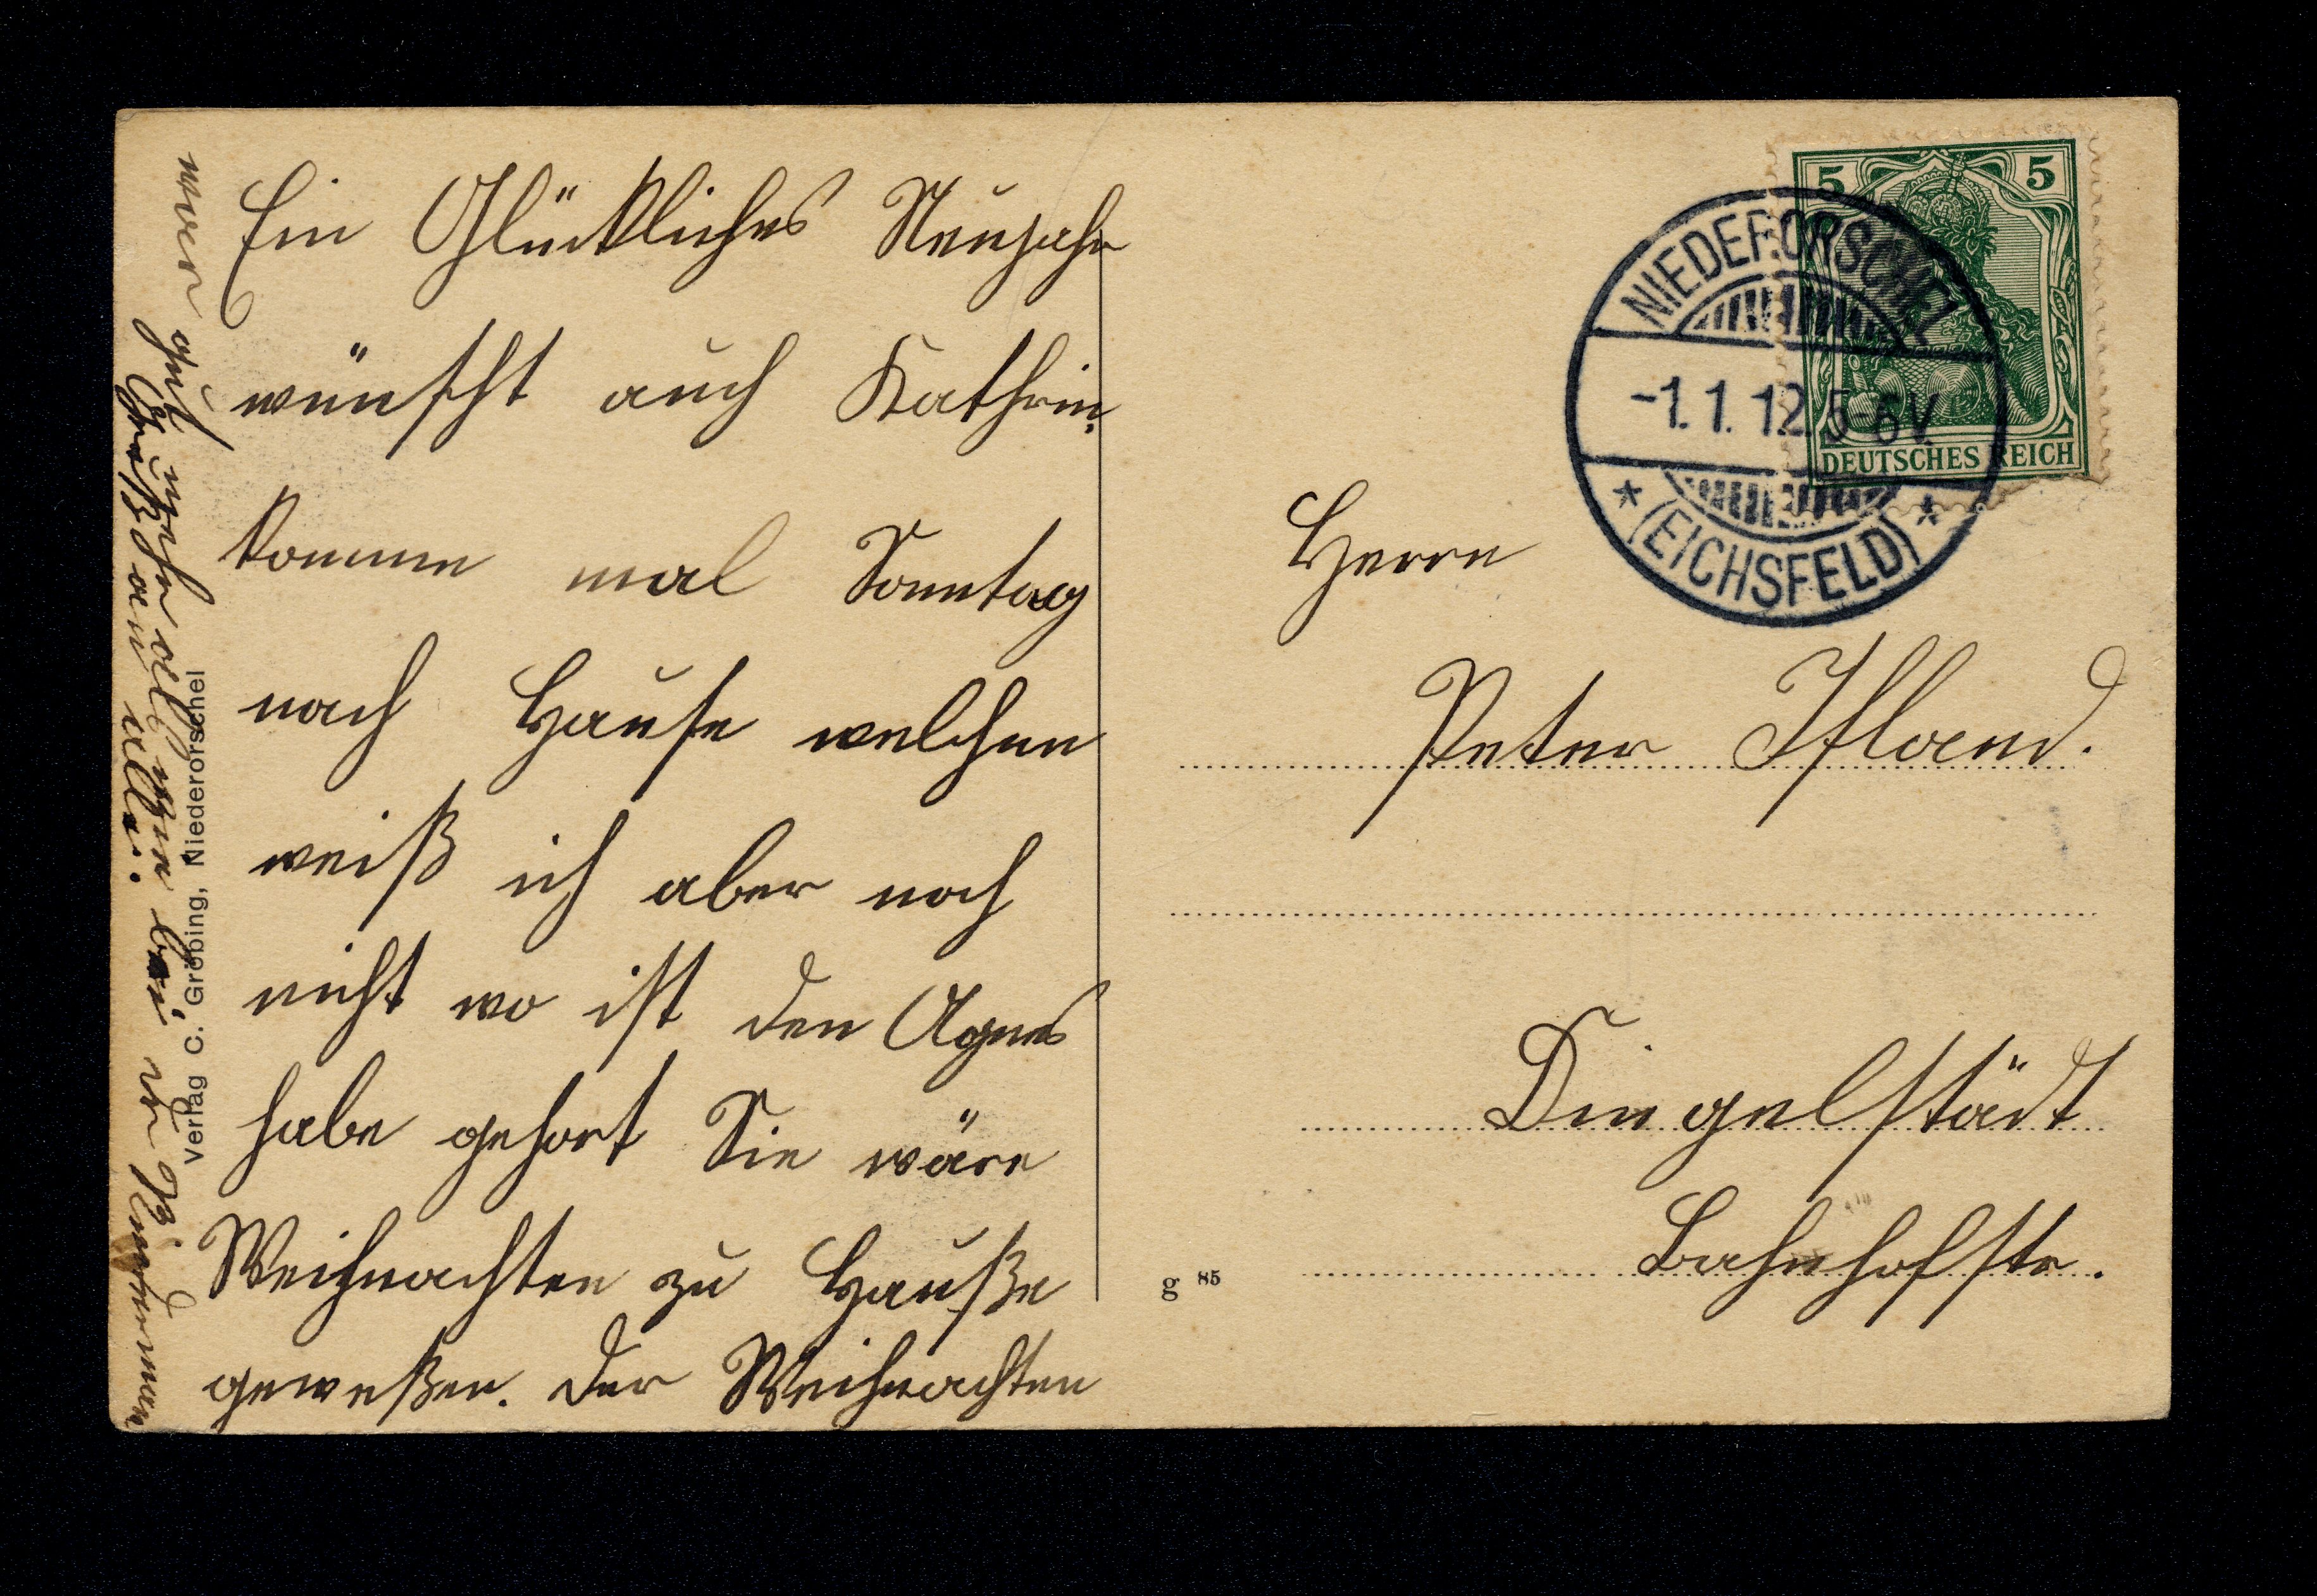 Ein Glückliches Neujahr
wünscht auch Kathrin.
komme mal Sonntag
nach Hause welchen
weiß ich aber noch
nicht wo ist den Agnes
habe gehort Sie wäre
Weihnachten zu Hauße
geweßen. Der Weihnachten
war gut mehr als wie bei
Gruß an alle.
Verlag C. Gröbing, Niederorschel
5 5
DEUTSCHES REICH
NIEDERORSCHEL
-1.1.12.5-6V.
* (EICHSFELD) *
Herrn
Peter Ifland.
Dingelstädt
Bahnhofstr.
g 85